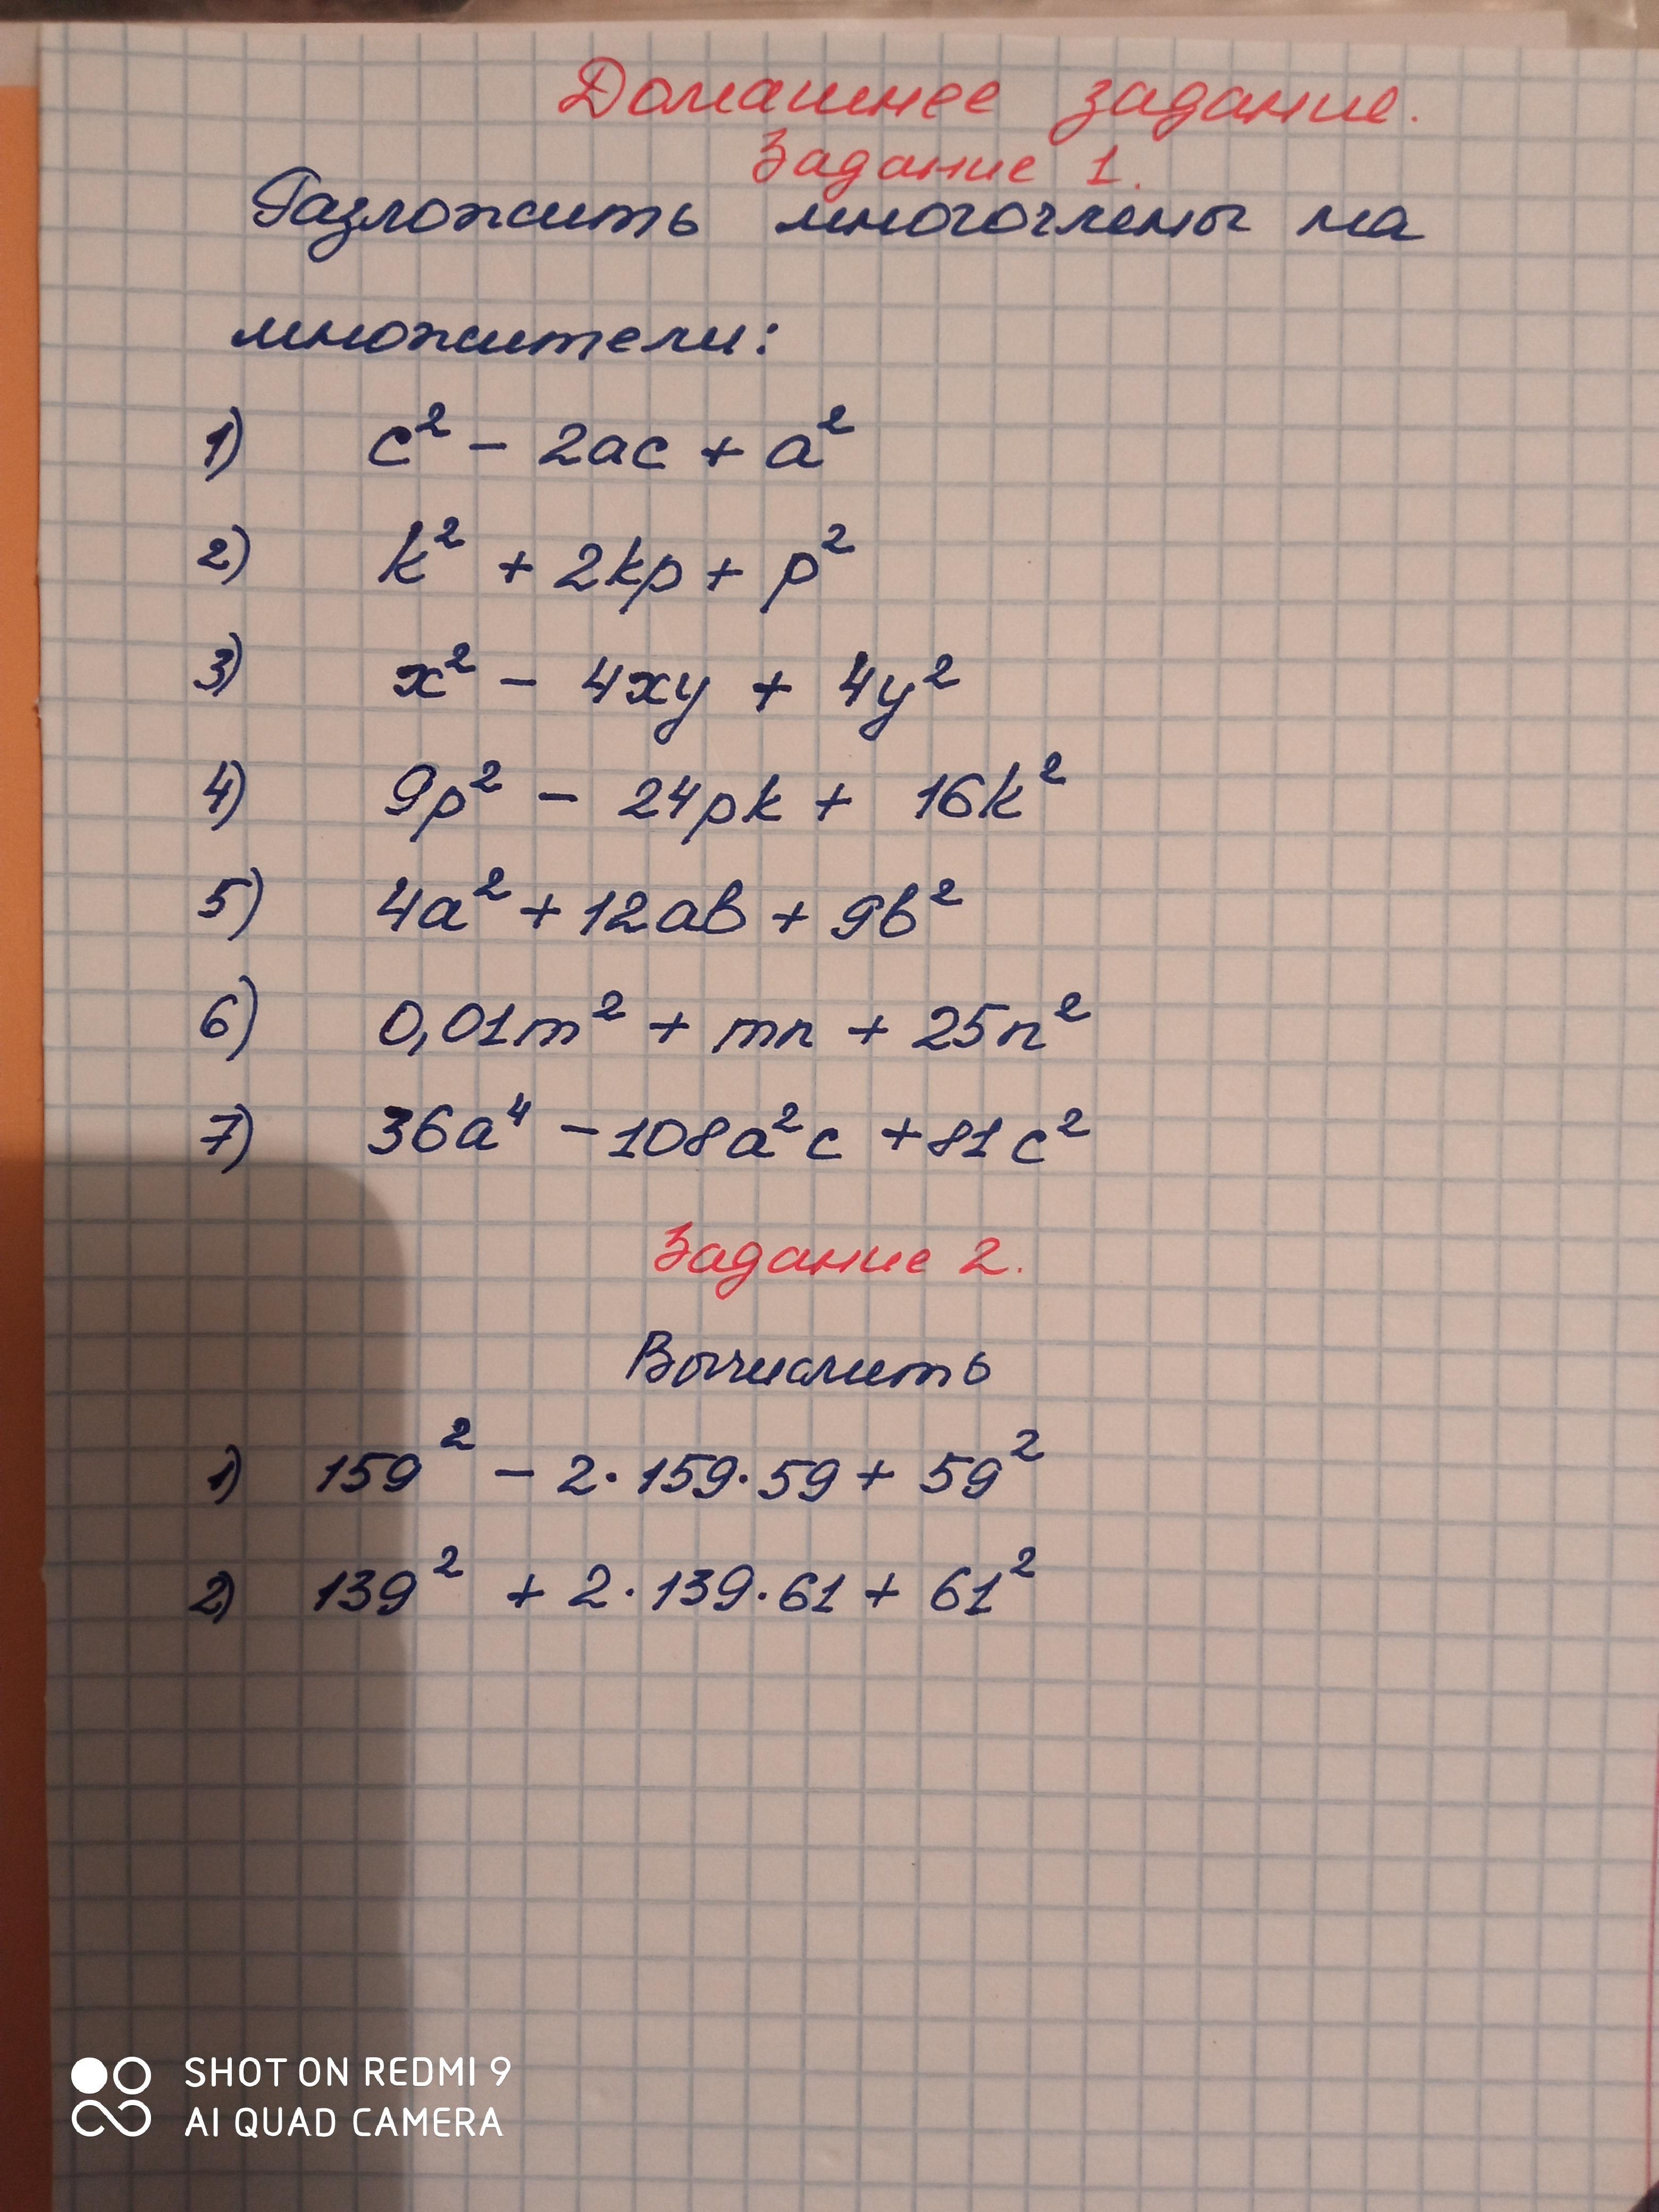 Домашнее задание.
Задание 1.
Разложить многочлены на
множители:
1) c² - 2ac + a²
2) k² + 2kp + p²
3) x² - 4xy + 4y²
4) 9p² - 24pk + 16k²
5) 4a² + 12ab + 9b²
6) 0,01m² + mn + 25n²
7) 36a⁴ - 108a²c + 81c²
Задание 2.
Вычислить
1) 159² - 2·159·59 + 59²
2) 139² + 2·139·61 + 61²
SHOT ON REDMI 9
AI QUAD CAMERA